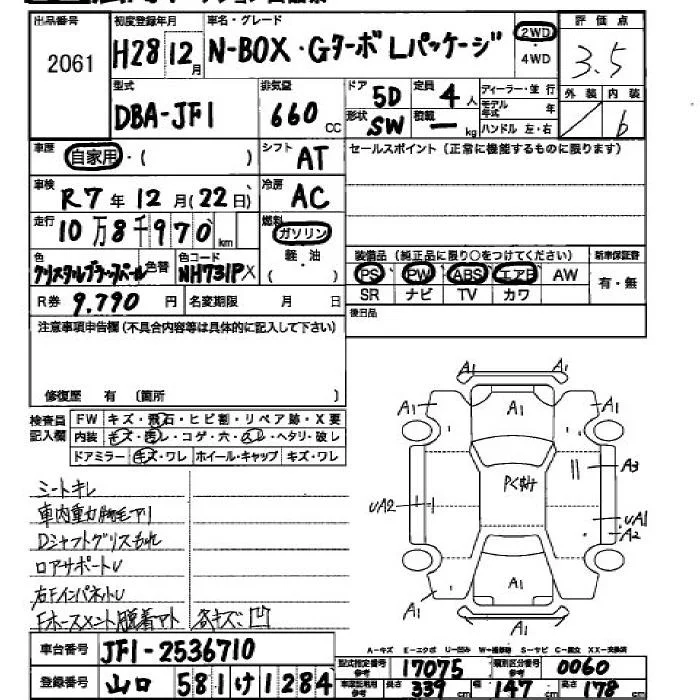 出品番号 初度登録年月 車名・グレード 評価点
2061 H28 12月 N-BOX・Gターボ Lパッケージ 2WD・4WD 3.5
型式 排気量 ドア 5D 定員 4人 ディーラー・並行 外装 内装
DBA-JF1 660cc 形状 SW 積載 ー kg モデル年式 年 ハンドル 左・右 b
車歴 自家用・( ) シフト AT セールスポイント(正常に機能するものに限ります)
車検 R7年12月(22日) 冷房 AC
走行 10万8千970km 燃料 ガソリン
軽・油
( )
色 クリスタルブラックパール 色替 色コード NH731P 装備品(純正品に限り○をつけてください) 新車保証書
PS PW ABS エアB AW 有・無
R券 9.790円 名変期限 月 日 SR ナビ TV カワ
注意事項申告欄(不具合内容等は具体的に記入して下さい) 後日品
修復歴 有 (箇所 )
検査員記入欄 FW キズ・飛石・ヒビ割・リペア跡・X要
内装 キズ・汚レ・コゲ・穴・スレ・ヘタリ・破レ
ドアミラー キズ・ワレ ホイール・キャップ キズ・ワレ
シートキレ
Dシャフトグリスもれ
ロアサポートU
右FインパネットU
各キズ凹
A1 A1
A1 A1 A1
A3
Pくすみ
UA2 UA1
A2
A1
A1 A1
車台番号 JF1-2536710
A-キズ E-エクボ U-凹み W-補修跡 S-サビ C-腐食 XX-交換済
型式指定番号 17075 類別区分番号 0060
登録番号 山口 581 け 1284
長さ 339cm 幅 147cm 高さ 178cm